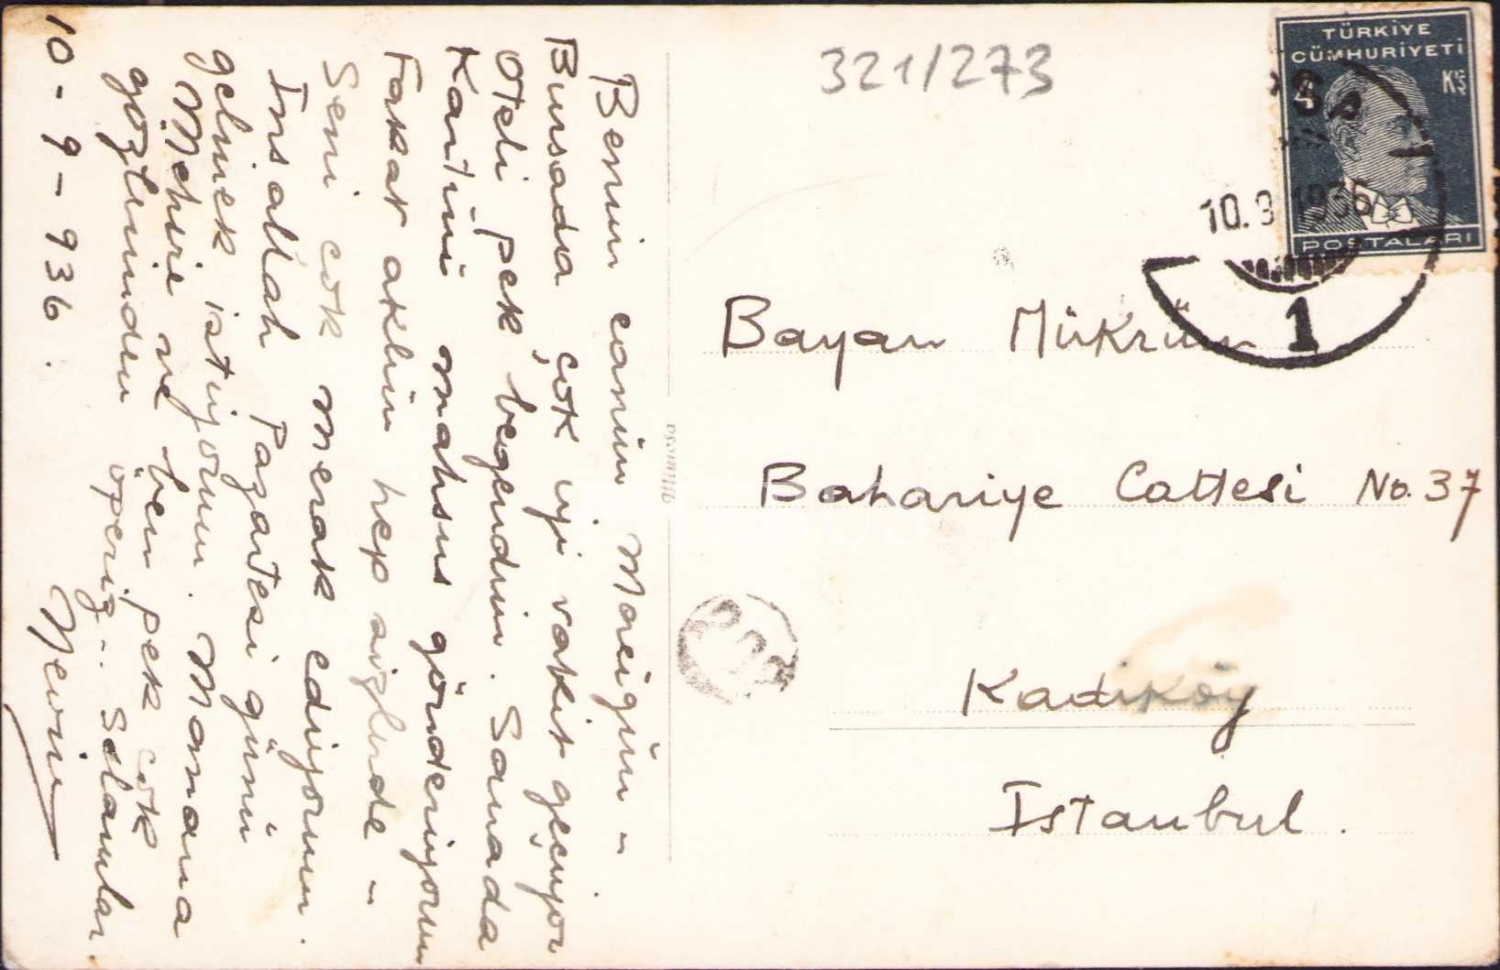 Benim canım
Bursada çok iyi vakit geçiyor
Oteli pek beğendim. Sanada
Kartını mahsus gönderiyorum
Fakat aklım hep sizlerde -
Seni cok merak ediyorum.
Inşallah Pazartesi günü
gelmek istiyorum. Mamana
ve ben pek çok
gözlerinden öperiz.. Selamlar.
10-9-936.
321/273
TÜRKİYE
CÜMHURİYETİ
4 Kş
POSTALARI
10.9 1936
1
Bayan Mükrüm
Bahariye Cattesi No. 37
Kadıköy
Istanbul.